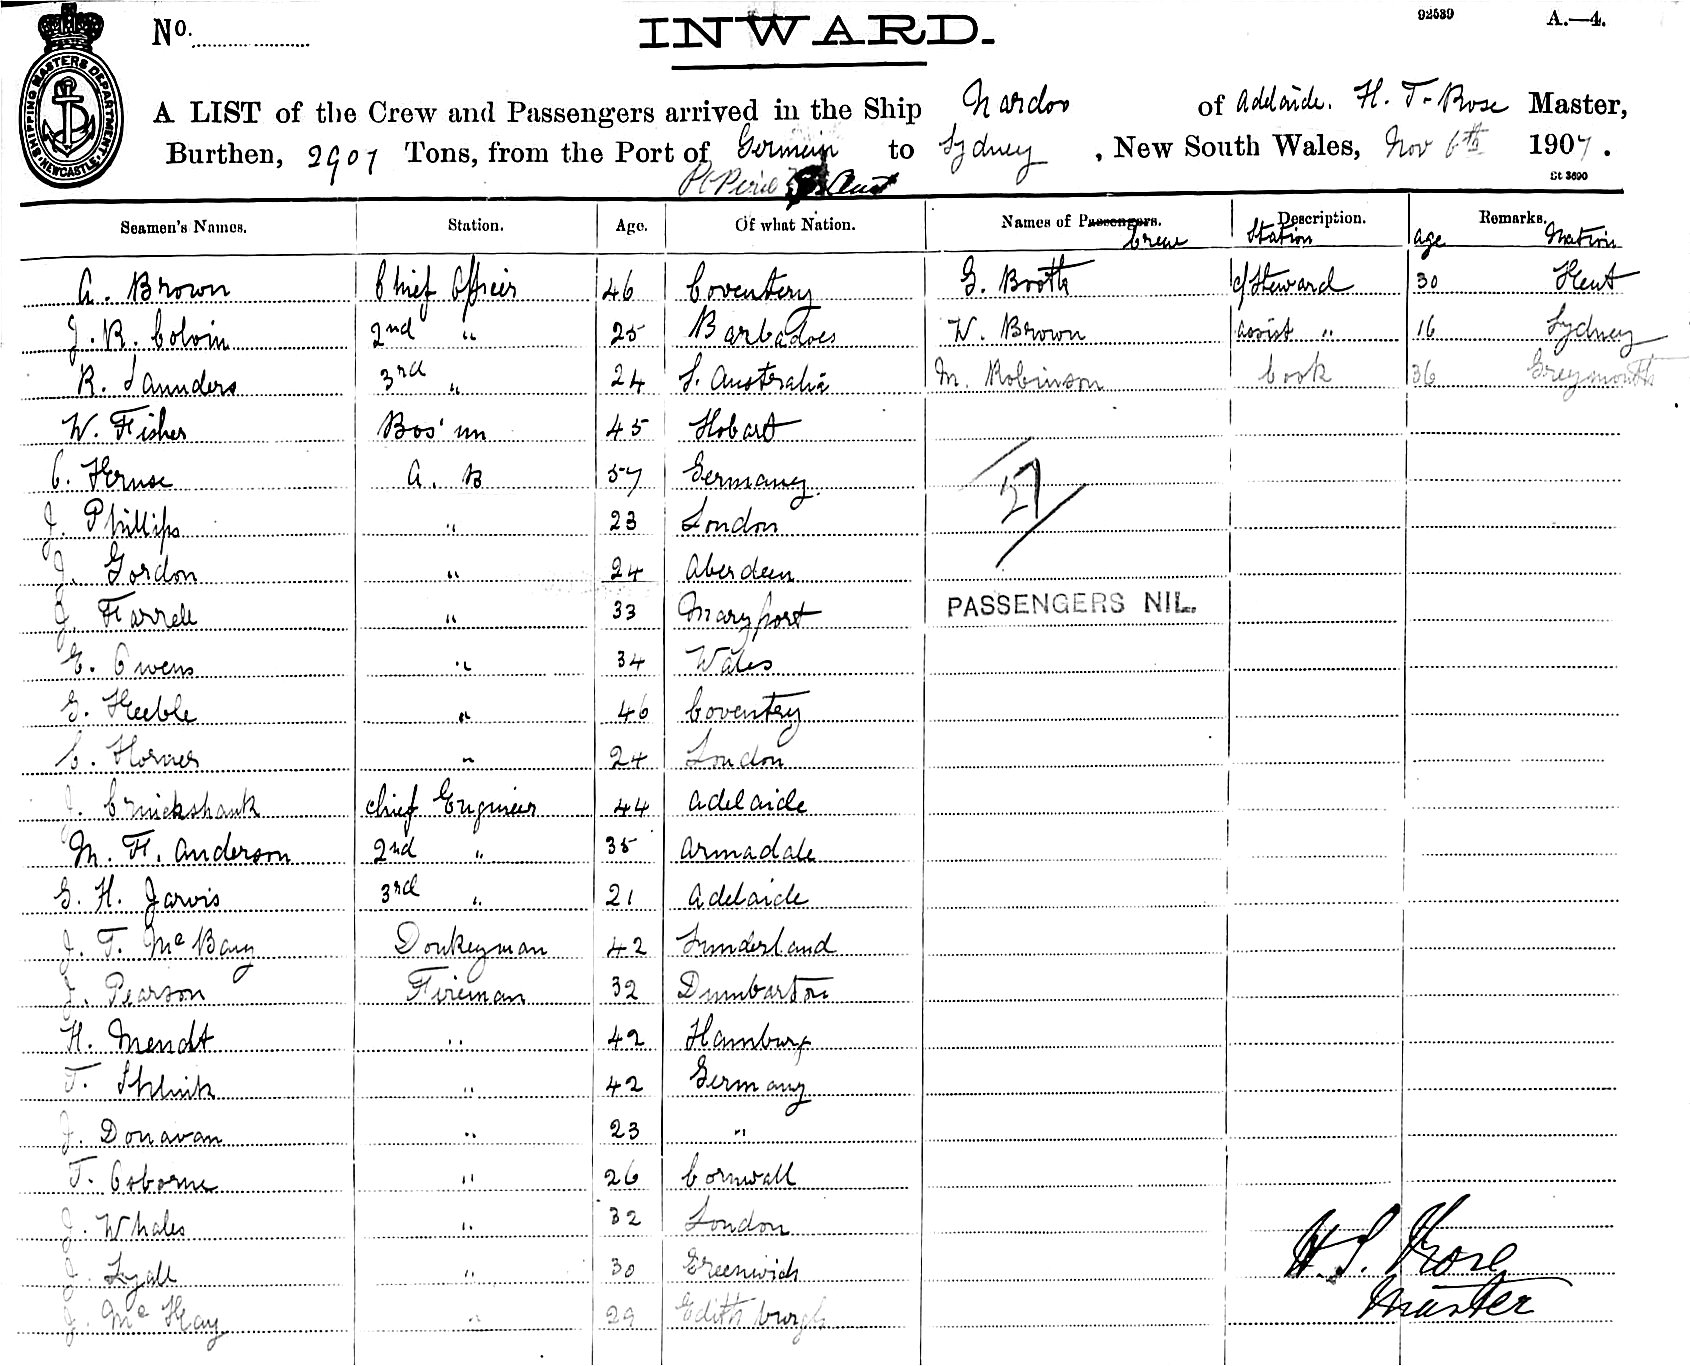 No. INWARD. 92539 A.—4.
SHIPPING MASTERS DEPARTMENT NEWCASTLE
A LIST of the Crew and Passengers arrived in the Ship Nardoo of Adelaide. H. T. Rose Master,
Burthen, 2907 Tons, from the Port of Germein to Sydney, New South Wales, Nov 6th 1907.
Pt Pirie Aust
St 3690
Seamen's Names. Station. Age. Of what Nation. Names of Passengers. Crew Description. Station Remarks. age Nation
A. Brown Chief Officer 46 Coventery G. Booth c/Steward 30 Kent
J. R. Colvin 2nd " 25 Barbadoes W. Brown assist " 16 Sydney
R. Saunders 3rd " 24 S. Australia M. Robinson Cook 36 Greymouth
W. Fisher Bos'un 45 Hobart
C. Kruse A. B 57 Germany.
J. Phillips " 23 London
J. Gordon " 24 Aberdeen
J. Farrell " 33 Maryport
PASSENGERS NIL.
E. Owens " 34 Wales
G. Keeble " 46 Coventry
C. Horner " 24 London
J. Cruickshank Chief Engineer 44 Adelaide
M. H. Anderson 2nd " 35 Armadale
G. H. Jarvis 3rd " 21 Adelaide
J. T. McBay Donkeyman 42 Sunderland
J. Pearson Fireman 32 Dumbarton
H. Mendt " 42 Hamburg
T. " 42 Germany
J. Donavan " 23 "
T. Osborne " 26 Cornwall
J. Whales " 32 London
J. Lyall " 30 Greenwich
J. McKay " 29 Edithburgh
27
H. T. Rose
Master